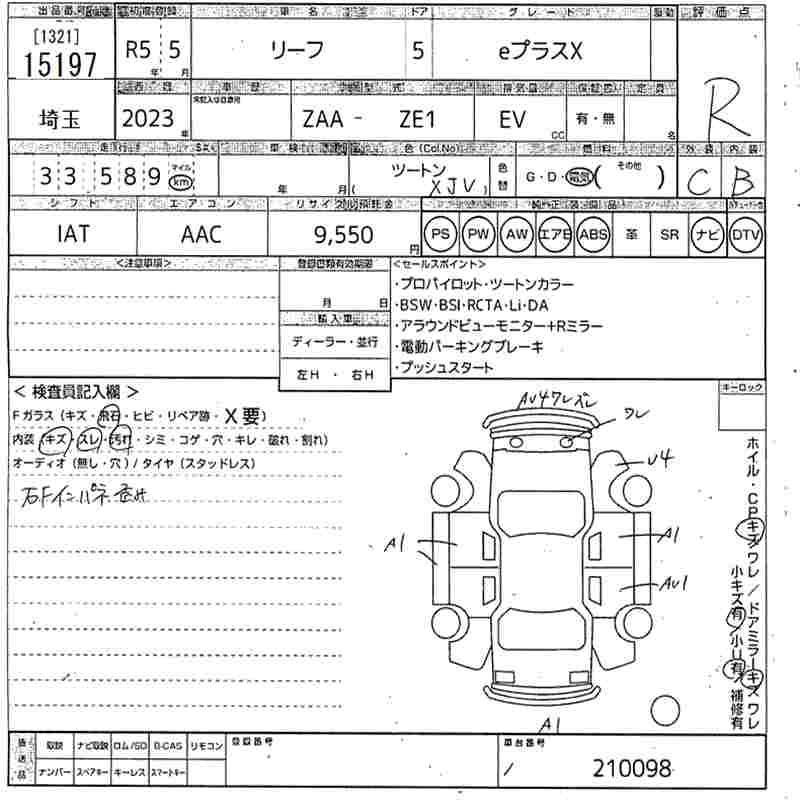 出品番号 初度登録 車名 ドア グレード 駆動 評価点
[1321]
15197 R5年 5月 リーフ 5 eプラスX R
車歴 型式 排気量 定員
未記入は自家用
埼玉 2023年 ZAA - ZE1 EV cc 有・無 名
走行 車検 色(Col.No) 燃料 外装 内装
33,589 マイル km 年 月 ツートン (XJV) 色替 G・D・電気( その他 ) C B
シフト エアコン リサイクル預託金 純正装備品
IAT AAC 9,550円 PS PW AW エアB ABS 革 SR ナビ DTV
<注意事項> 登録書類有効期限 <セールスポイント>
月 日
・プロパイロット・ツートンカラー
・BSW・BSI・RCTA・Li・DA
輸入車
・アラウンドビューモニター+Rミラー
ディーラー・並行
・電動パーキングブレーキ
左H ・ 右H
・プッシュスタート
< 検査員記入欄 >
キーロック
Fガラス(キズ・飛石・ヒビ・リペア跡・X要)
内装(キズ・スレ・汚れ・シミ・コゲ・穴・キレ・破れ・割れ)
オーディオ(無し・穴)/タイヤ(スタッドレス)
AU4ワレズレ
ワレ
U4
A1
A1
AU1
A1
ホイル・CPキズワレ/ドアミラーキズワレ
小キズ有/小U有/補修有
後送品 取説 ナビ取説 ロム/SD B-CAS リモコン 登録番号 車台番号
ナンバー スペアキー キーレス スマートキー
210098